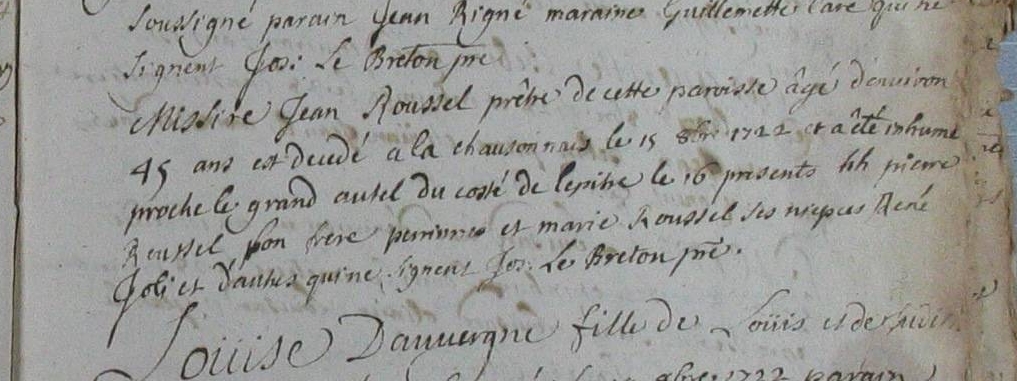 Soussigné parain Jean Rigné maraine Guillemette qui ne
signent Jos: Le Breton pre
Missire Jean Roussel prêtre de cette paroisse âgé d'environ
45 ans est decedé a la chausonnais le 15 8bre 1722 et a êté inhumé
proche le grand autel du costé de lepitre le 16 presents hh pierre
Roussel son frere perrinne et marie Roussel ses niepces René
Joli et d'autres qui ne signent Jos: Le Breton pre.
Loüise Dauvergne fille de Loüis et de
8bre 1722 parain